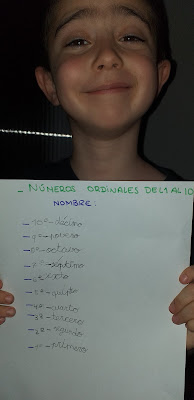 _ NÚMEROS ORDINALES DEL 1 AL 10
NOMBRE:
_ 10º - décimo
_ 9º - noveno
_ 8º - octavo
_ 7º - séptimo
_ 6º sexto
_ 5º - quinto
_ 4º - cuarto
_ 3º - tercero
_ 2º - segundo
_ 1º - primero